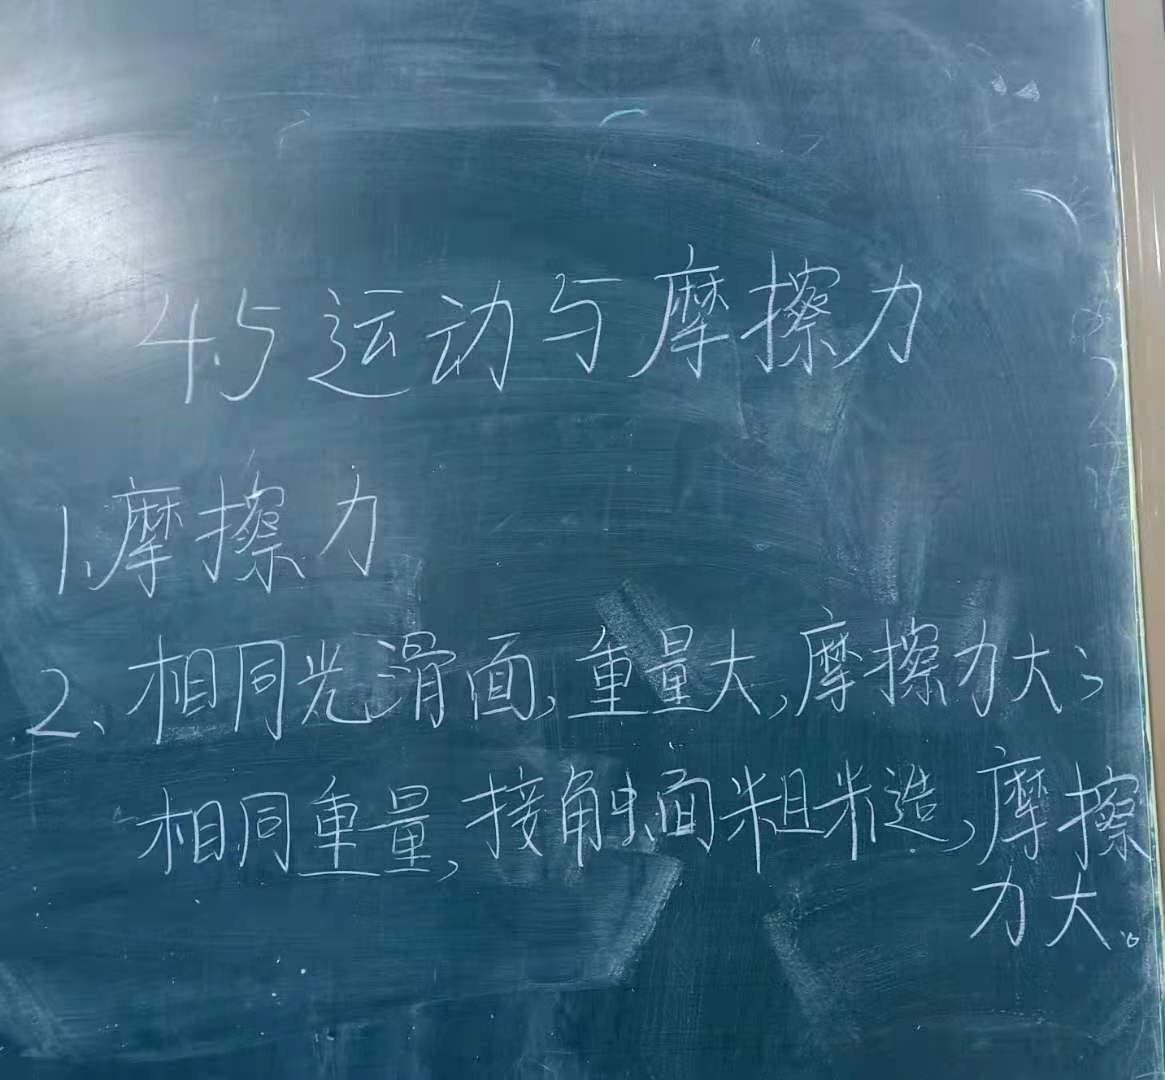 4.5运动与摩擦力
1.摩擦力
2、相同光滑面,重量大,摩擦力大;
相同重量,接触面粗糙,摩擦
力大。